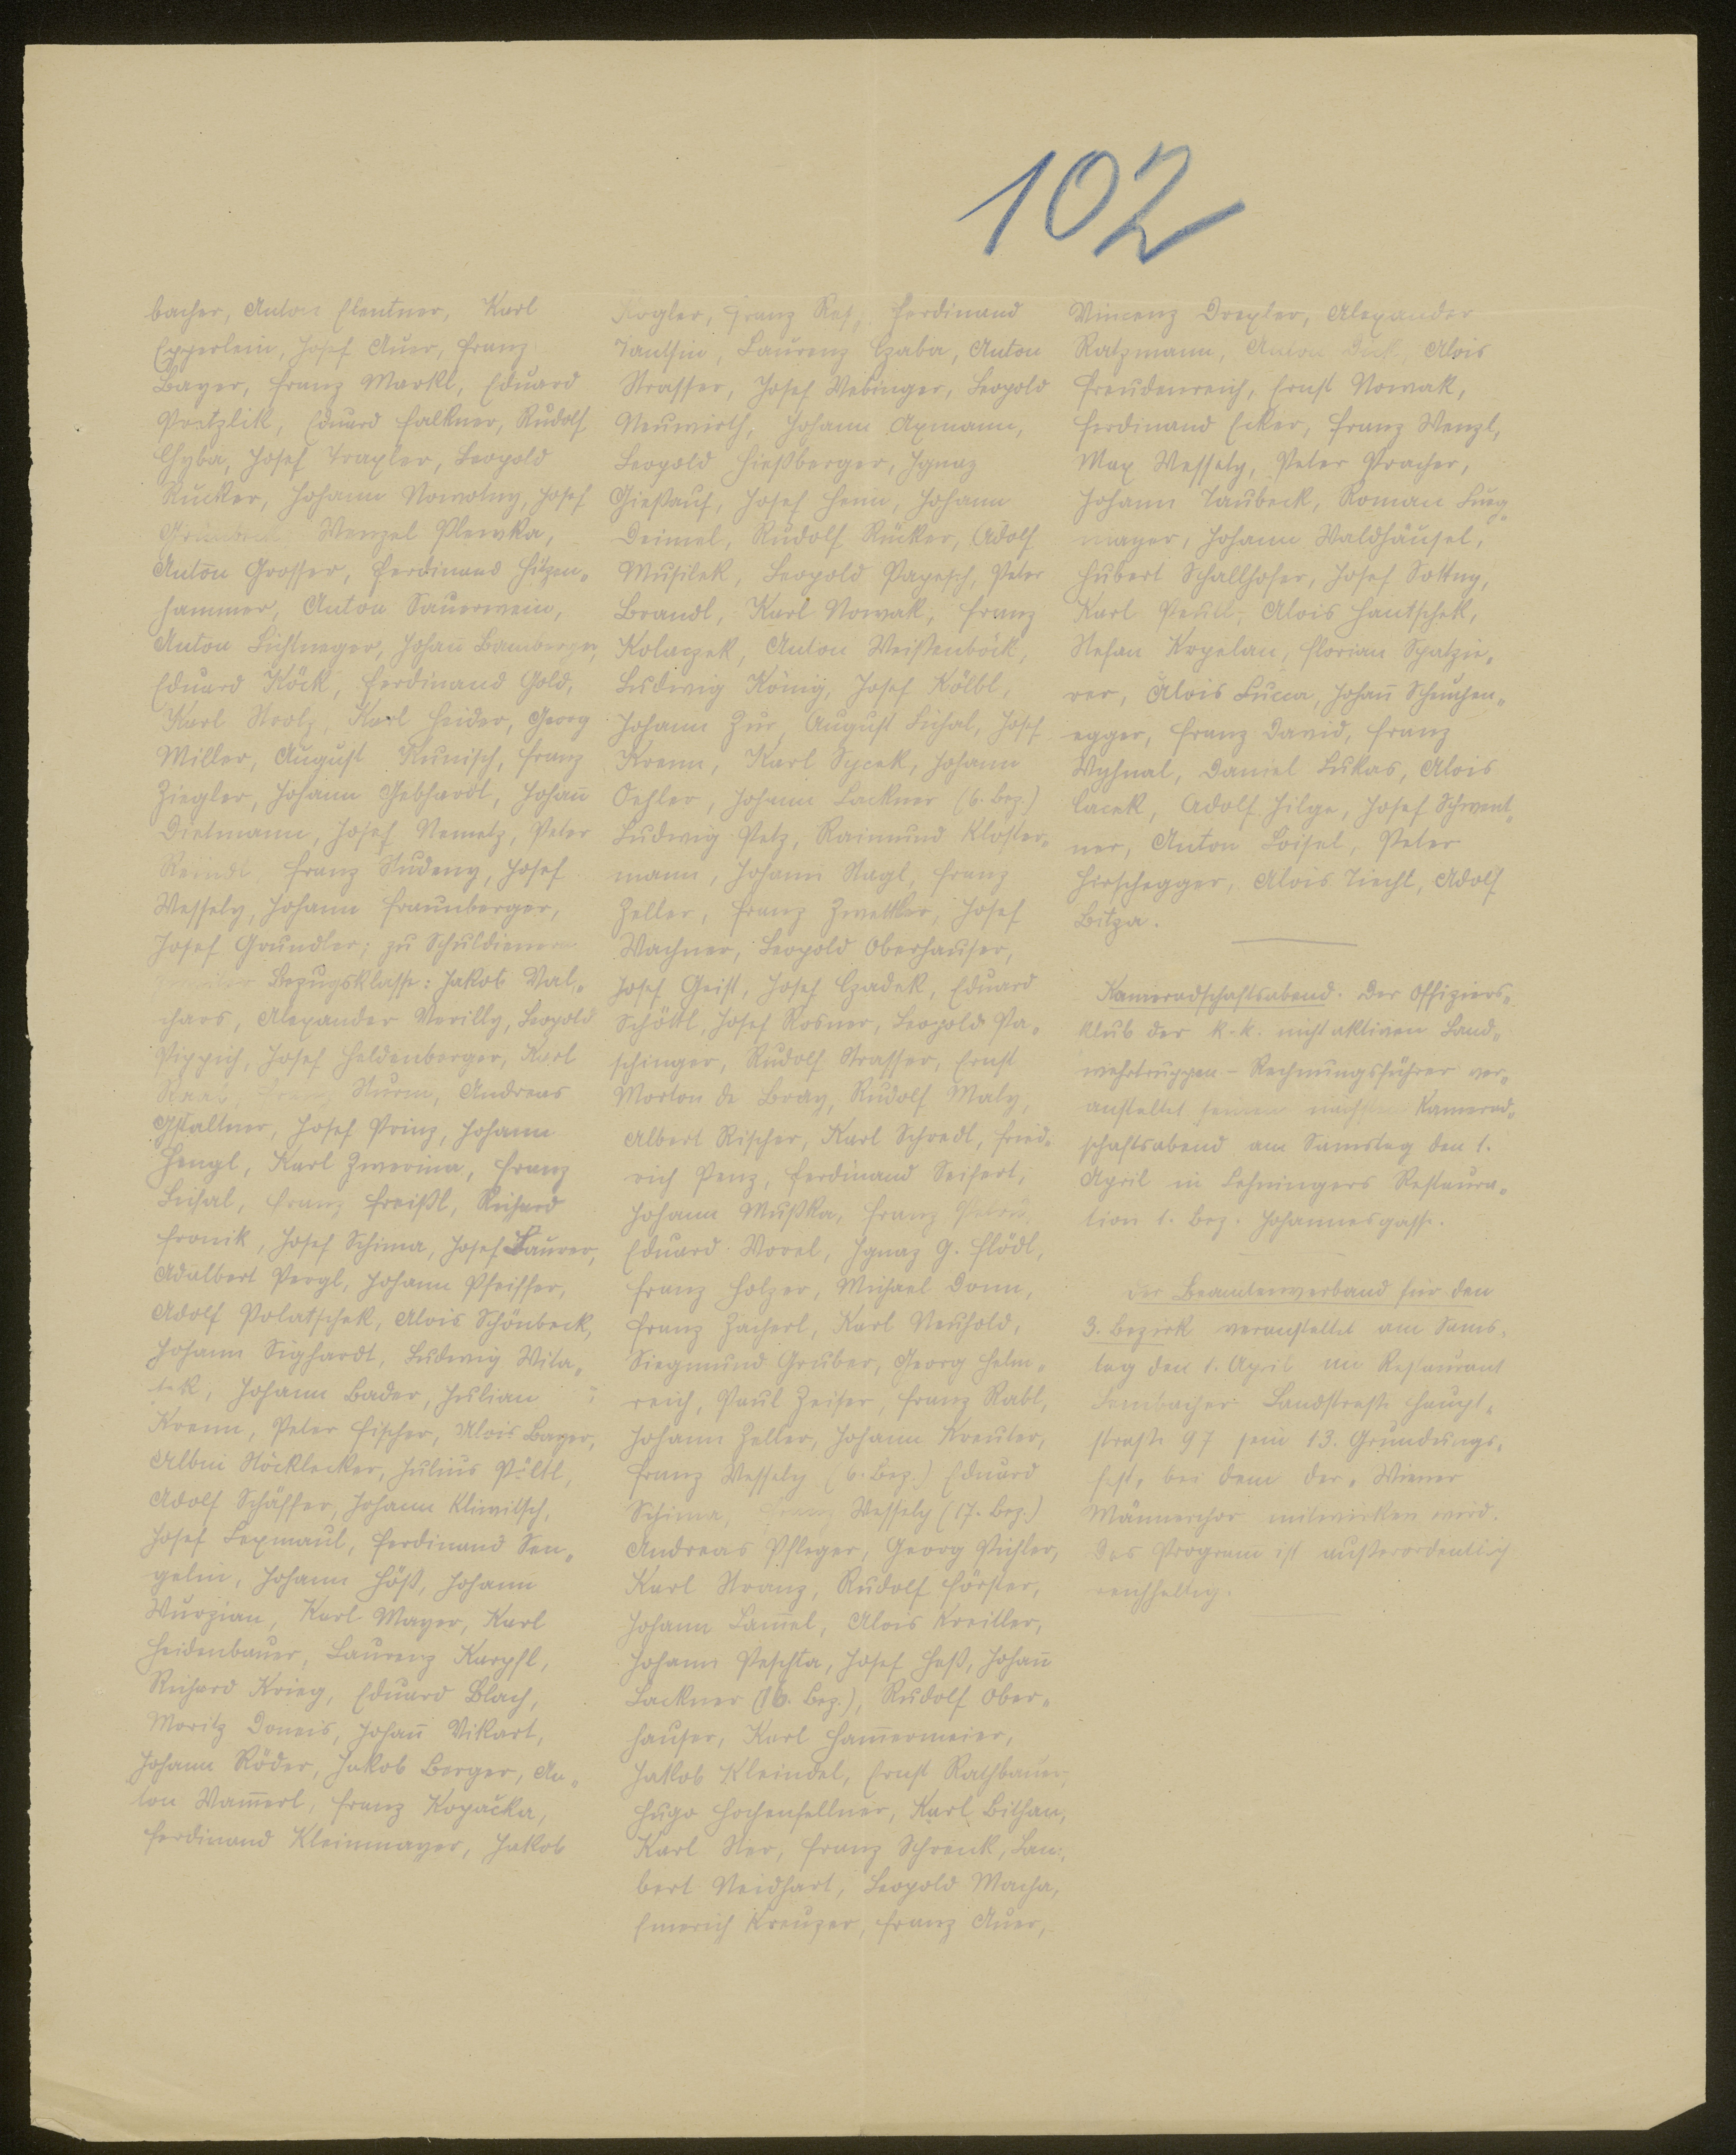 102
bacher, Anton Elentner, Karl
Epperlein, Josef Auer, Franz
Bayer, Franz Markl, Eduard
Pretzlik, Eduard Falkner, Rudolf
Chyba, Josef Traxler, Leopold
Rucker, Johann Nowotny, Josef
Wenzel Plewka,
Anton Grosser, Ferdinand Hitzen„
hammer, Anton Sauerwein,
Anton Lichtneger, Johañ Bamberger,
Eduard Köck, Ferdinand Gold,
Karl Strolz, Karl Heider, Georg
Miller, August Kunisch, Franz
Ziegler, Johann Gebhardt, Johañ
Dietmann, Josef Nemetz, Peter
Reindl, Franz Studeny, Josef
Wessely, Johann Fraunberger,
Josef Grundler; zu Schuldienern
zweiter Bezugsklasse: Jakob Wal„
chars, Alexander Verilly, Leopold
Pippich, Josef Heldenberger, Karl
Sturm, Andreas
Gstaltner, Josef Prinz, Johann
Hengl, Karl Zwerina, Franz
Lichal, Franz Freißl, Richard
Fronik, Josef Schima, Josef Laurer,
Adalbert Pergl, Johann Pfeiffer,
Adolf Polatschek, Alois Schönbeck,
Johann Sighardt, Ludwig Wita„
tek, Johann Bader, Julian
Krenn, Peter Fischer, Alois Bayer,
Albin Stöcklecker, Julius Pöltl,
Adolf Schäffer, Johann Klimitsch,
Josef Lexmaul, Ferdinand Sen„
gelin, Johann Höß, Johann
Wurzian, Karl Mayer, Karl
Heidenbauer, Laurenz Karpfl,
Richard Krieg, Eduard Blach,
Moritz Doneis, Johañ Vikart,
Johann Röder, Jakob Berger, An„
ton Wam̃erl, Franz Kopačka,
Ferdinand Kleinmayer, Jakob
Kogler, Franz Ref, Ferdinand
Jantsin, Laurenz Czaba, Anton
Strasser, Josef Webinger, Leopold
Neuwirth, Johann Axmann,
Leopold Hießberger, Ignaz
Gießauf, Josef Heim, Johann
Deimel, Rudolf Rücker, Adolf
Musilek, Leopold Papesch, Peter
Brandl, Karl Nowak, Franz
Kolaczek, Anton Weißenböck,
Ludwig König, Josef Kölbl,
Johann Zur, August Lichal, Josef
Krenn, Karl Sycek, Johann
Oehler, Johann Lackner (6. Bez.)
Ludwig Petz, Raimund Kloster„
mann, Johann Nagl, Franz
Zeller, Franz Zwettler, Josef
Wachner, Leopold Oberhauser,
Josef Geist, Josef Czadek, Eduard
Schöttl, Josef Rosner, Leopold Pa„
schinger, Rudolf Strasser, Ernst
Morton de Bray, Rudolf Maly,
Albert Rischer, Karl Schredl, Fried„
rich Penz, Ferdinand Seifert,
Johann Mußka, Franz
Eduard Worel, Ignaz G. Flödl,
Franz Holzer, Michael Donn,
Franz Zacherl, Karl Neuhold,
Siegmund Gruber, Georg Helm„
reich, Paul Zeiser, Franz Rabl,
Johann Zeller, Johann Kreuter,
Franz Wessely (6. Bez.) Eduard
Schima, Franz Wessely (17. Bez.)
Andreas Pfleger, Georg Pichler,
Karl Stranz, Rudolf Förster,
Johann Lam̃el, Alois Kreitler,
Johann Peschta, Josef Heß, Johañ
Lackner (16. Bez.), Rudolf Ober„
hauser, Karl Ham̃ermeier,
Jakob Kleindel, Ernst Rathbauer,
Hugo Hochenfellner, Karl Bithan,
Karl Ster, Franz Schrenk, Lam„
bert Neidhart, Leopold Macha,
Emerich Kreuzer, Franz Auer,
Vincenz Drexler, Alexander
Ratzmann, Anton Alois
Freudenreich, Ernst Nowak,
Ferdinand Ecker, Franz Wenzl,
Max Wessely, Peter Pracher,
Johann Taubeck, Roman Lueg„
mayer, Johann Waldhäusel,
Hubert Schallhofer, Josef Sottny,
Karl Peutl, Alois Hantschek,
Stefan Kopelan, Florian Spatzie„
rer, Alois Lucca, Johañ Scheuchen„
egger, Franz David, Franz
Wyhnal, Daniel Lukas, Alois
Cacek, Adolf Hilge, Josef Schwent„
ner, Anton Loisel, Peter
Hirschegger, Alois Tiecht, Adolf
Bitza.
Kameradschaftsabend. Der Offiziers„
klub der k.k. nicht aktiven Land„
wehrtruppen-Rechnungsführer ver„
anstaltet seinen nächsten Kamerad„
schaftsabend am Samstag den 1.
April in Lehningers Restaura„
tion 1. Bez. Johannesgasse.
Der Beamtenverband für den
3. Bezirk veranstaltet am Sams„
tag den 1. April im Restaurant
Dambacher Landstraße Haupt„
straße 97 sein 13. Gründungs„
fest, bei dem der „Wiener
Männerchor mitwirken wird.
Das Program ist außerordentlich
reichhaltig.